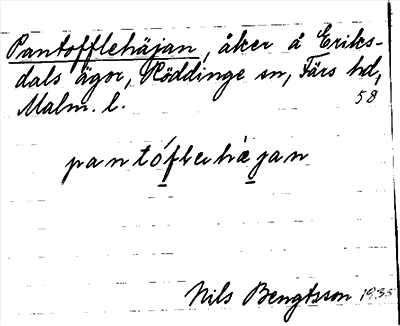 Pantofflehäjan, åker å Eriks-
dals ägor, Röddinge sn, Färs hd,
Malm. l. 58
pantóflerhäjan
Nils Bengtsson 1935